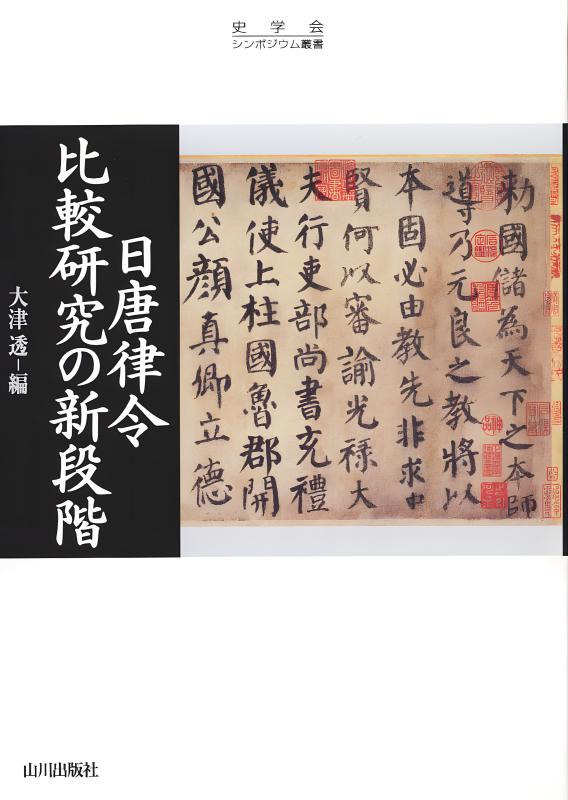 史学会
シンポジウム叢書
日唐律令
比較研究の新段階
大津透－編
勅國儲為天下之本師
導乃元良之教將以
本固必由教先非求中
賢何以審諭光祿大
夫行吏部尚書充禮
儀使上柱國魯郡開
國公顏真卿立德
山川出版社